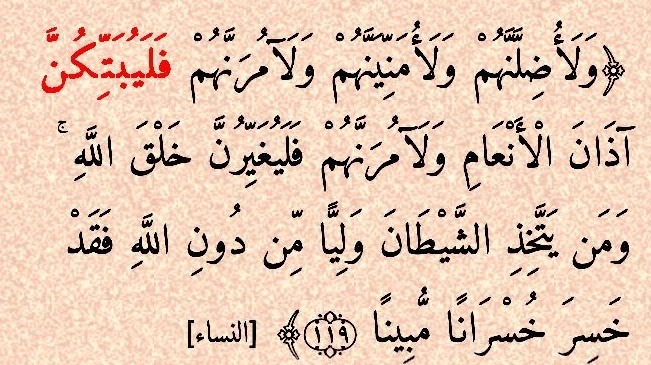 ﴿وَلَأُضِلَّنَّهُمْ وَلَأُمَنِّيَنَّهُمْ وَلَآمُرَنَّهُمْ فَلَيُبَتِّكُنَّ
آذَانَ الْأَنْعَامِ وَلَآمُرَنَّهُمْ فَلَيُغَيِّرُنَّ خَلْقَ اللَّهِ ۚ
وَمَن يَتَّخِذِ الشَّيْطَانَ وَلِيًّا مِّن دُونِ اللَّهِ فَقَدْ
خَسِرَ خُسْرَانًا مُّبِينًا ﴿١١٩﴾ [النساء]